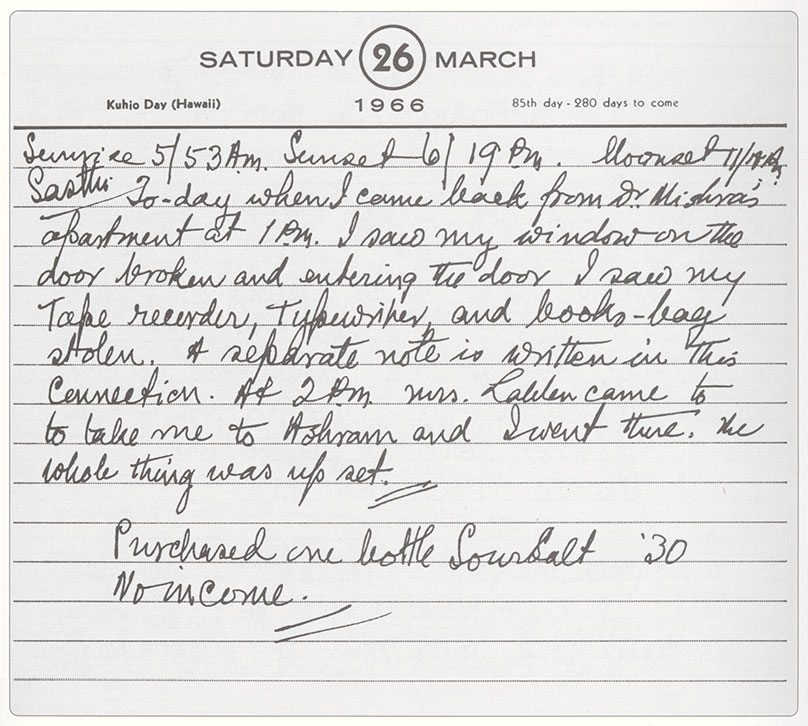 SATURDAY 26 MARCH
Kuhio Day (Hawaii) 1966 85th day - 280 days to come
Sunrise 5/53 Am. Sunset 6/19 Pm. Moonset 11/
Sasthi To-day when I came back from Dr. Mishra's
apartment at 1 Pm. I saw my window on the
door broken and entering the door I saw my
Tape recorder, Typewriter, and books-bag
stolen. A separate note is written in this
Connection. At 2 Pm mrs. came to
to take me to Ashram and I went there. The
whole thing was up set.
Purchased one bottle Sour Salt '30
No income.